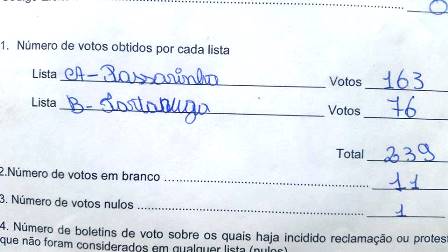 0
1. Número de votos obtidos por cada lista
Lista A - Passarinho Votos 163
Lista B - Tartaruga Votos 76
Total 239
2.Número de votos em branco 11
3. Número de votos nulos 1
4. Número de boletins de voto sobre os quais haja incidido reclamação ou protes
que não foram considerados em qualquer lista (nulos)